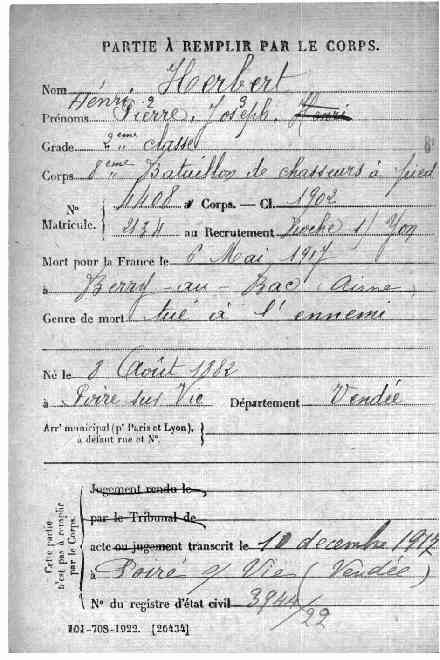 PARTIE À REMPLIR PAR LE CORPS.
Nom Herbert
Henri 2 3
Prénoms Pierre, Joseph, Henri
Grade 2ème classe
Corps 8ème Bataillon de chasseurs à pied
No Matricule. { 4408 au Corps. — Cl. 1902
2134 au Recrutement Roche s/ Yon
Mort pour la France le 6 Mai 1917
à Berry-au-Bac (Aisne)
Genre de mort tué à l'ennemi
Né le 8 Août 1882
à Poiré sur Vie Département Vendée
Arrt municipal (pr Paris et Lyon), à défaut rue et No. }
Cette partie n'est pas à remplir par le Corps.
Jugement rendu le
par le Tribunal de
acte ou jugement transcrit le 10 decembre 1917
à Poiré s/ Vie (Vendée)
No du registre d'état civil 3944/22
101-708-1922. [26434]